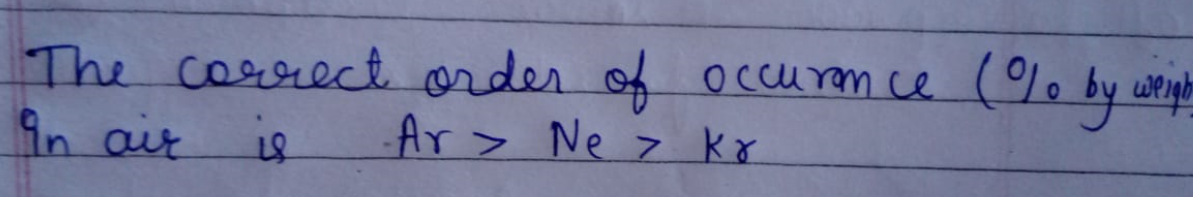 The correct order of occurance (% by weigh
In air is Ar > Ne > Kr